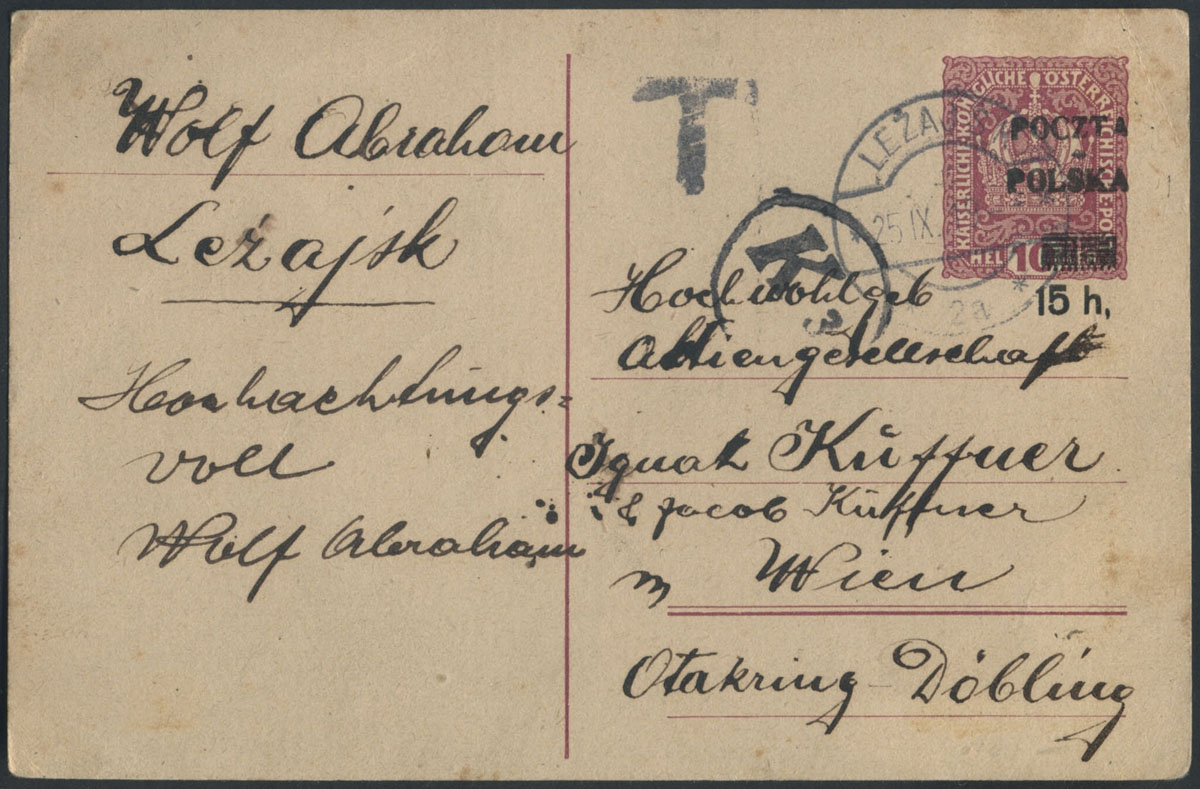 Wolf Abraham
Leżajsk
Hochachtungs=
voll
Wolf Abraham
T
LEŻAJSK
25 IX
2a
K
3
KAISERLICHE KÖNIGLICHE ÖSTERREICHISCHE POST
HEL 10
POCZTA
POLSKA
15 h,
Hochwohlgeb
Aktiengesellschaft
Ignatz Kuffner
& Jacob Kuffner
in Wien
Otakring-Döbling